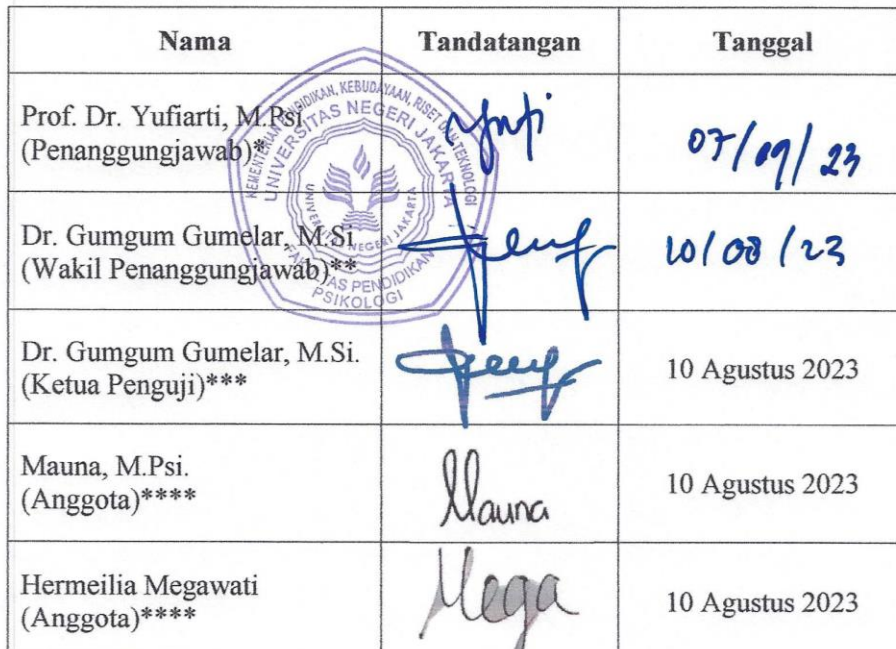 Nama Tandatangan Tanggal
Prof. Dr. Yufiarti, M.Psi
(Penanggungjawab)*
07/09/23
Dr. Gumgum Gumelar, M.Si
(Wakil Penanggungjawab)**
10/08/23
Dr. Gumgum Gumelar, M.Si.
(Ketua Penguji)***
10 Agustus 2023
Mauna, M.Psi.
(Anggota)****
Mauna
10 Agustus 2023
Hermeilia Megawati
(Anggota)****
Mega
10 Agustus 2023
KEMENTERIAN PENDIDIKAN, KEBUDAYAAN, RISET DAN TEKNOLOGI
UNIVERSITAS NEGERI JAKARTA
UNIVERSITAS NEGERI JAKARTA
FAKULTAS PENDIDIKAN
PSIKOLOGI